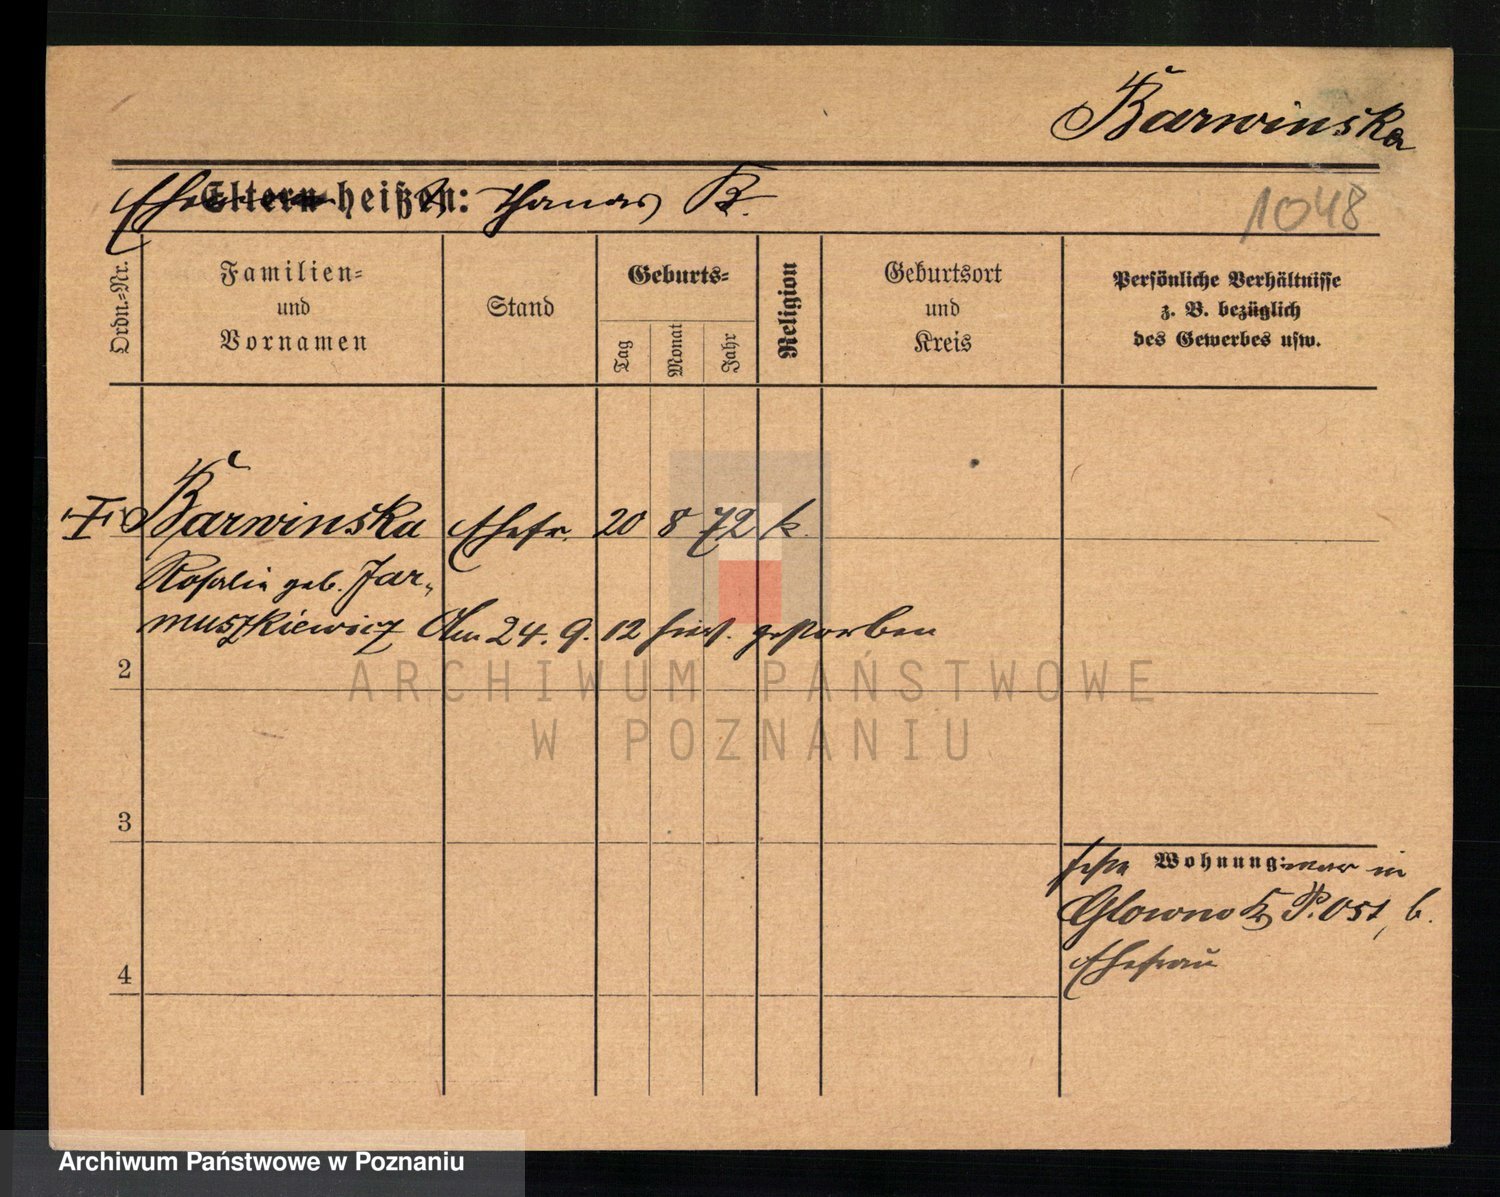 Barwinska
Eltern heißen: Thomas B.
1048
Ordn.-Nr.
Familien-
und
Vornamen
Stand
Geburts-
Tag
Monat
Jahr
Religion
Geburtsort
und
Kreis
Persönliche Verhältnisse
z. B. bezüglich
des Gewerbes usw.
Barwinska Ehefr. 20 8 72 k.
Rosalie geb. Jar-
muszkiewicz Am 24. 9. 12 hier. gestorben
2
ARCHIWUM PAŃSTWOWE
W POZNANIU
3
Wohnung: war in
Glowno P. Ost, b.
4
Ehefrau
Archiwum Państwowe w Poznaniu